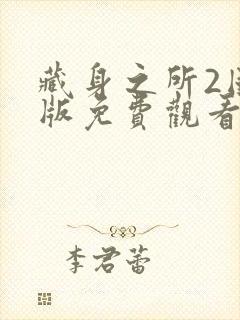 藏身之所2
版免費觀看
李君蕾